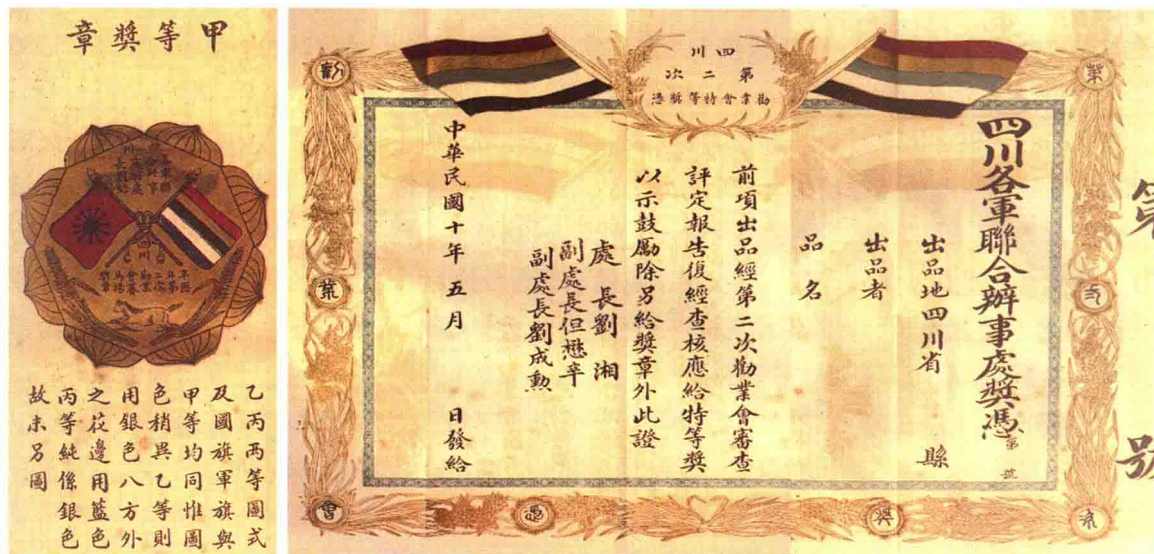 甲等獎章
乙丙两等圖式
及國旗軍旗與
甲等均同惟圖
色稍異乙等則
用銀色八方外
之花邊用藍色
丙等純係銀色
故未另圖
四川
第二次
勸業會特等獎憑
四川各軍聯合辦事處獎憑
第 號
出品地四川省 縣
出品者
品名
前項出品經第二次勸業會審查
評定報告復經查核應給特等獎
以示鼓勵除另給獎章外此證
處長劉湘
副處長但懋辛
副處長劉成勳
中華民國十年五月 日發給
第 號